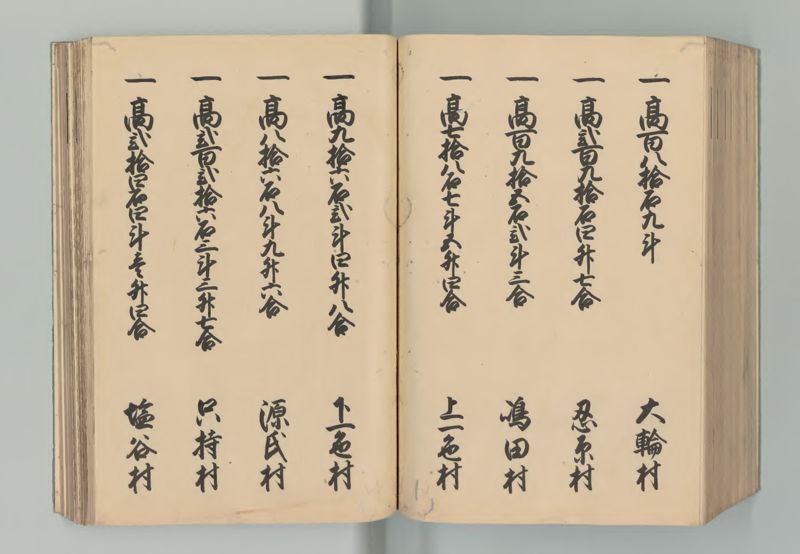 一 高百八拾石九斗 大輪村
一 高弐百九拾石四升七合 忍原村
一 高百九拾五石弐斗三合 嶋田村
一 高七拾八石七斗五升四合 上一色村
一 高九拾六石弐斗四升八合 下一色村
一 高八拾六石八斗九升六合 源氏村
一 高弐百弐拾六石三斗三升七合 只持村
一 高弐拾四石四斗壱升四合 塩谷村